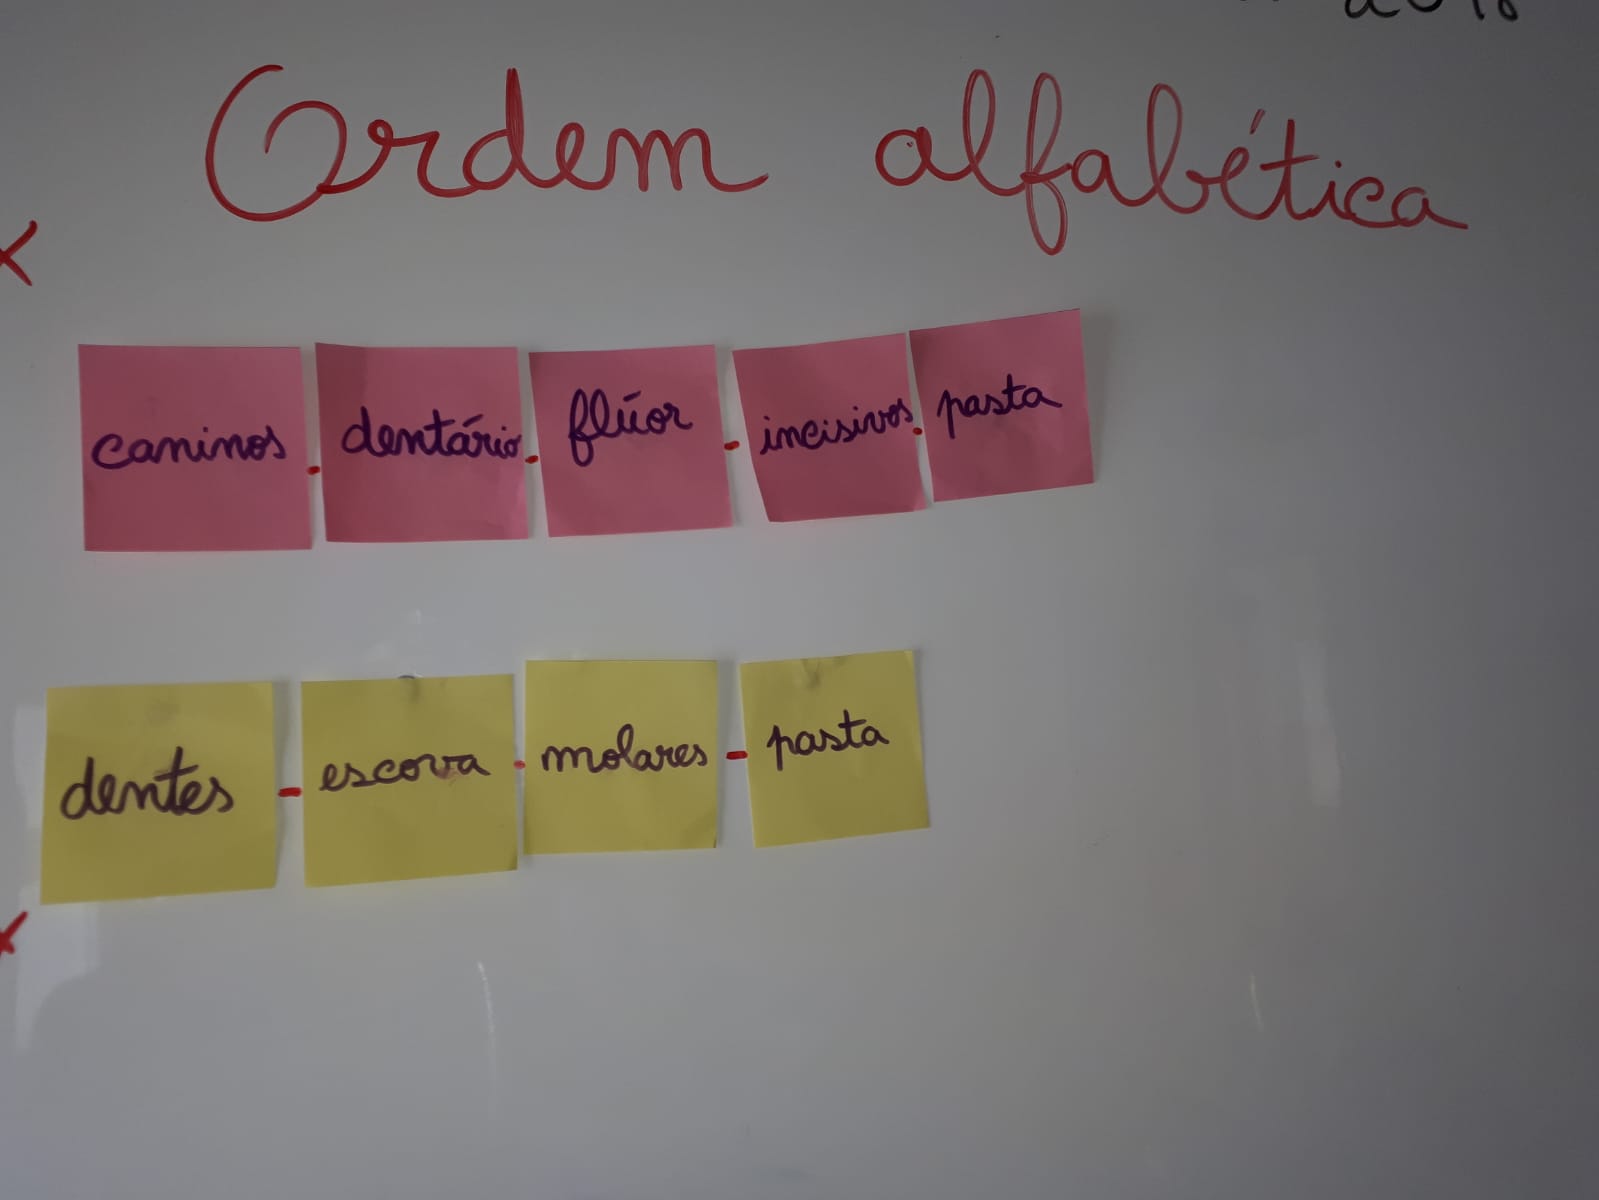 Ordem alfabética
caninos - dentário - flúor - incisivos - pasta
dentes - escova - molares - pasta